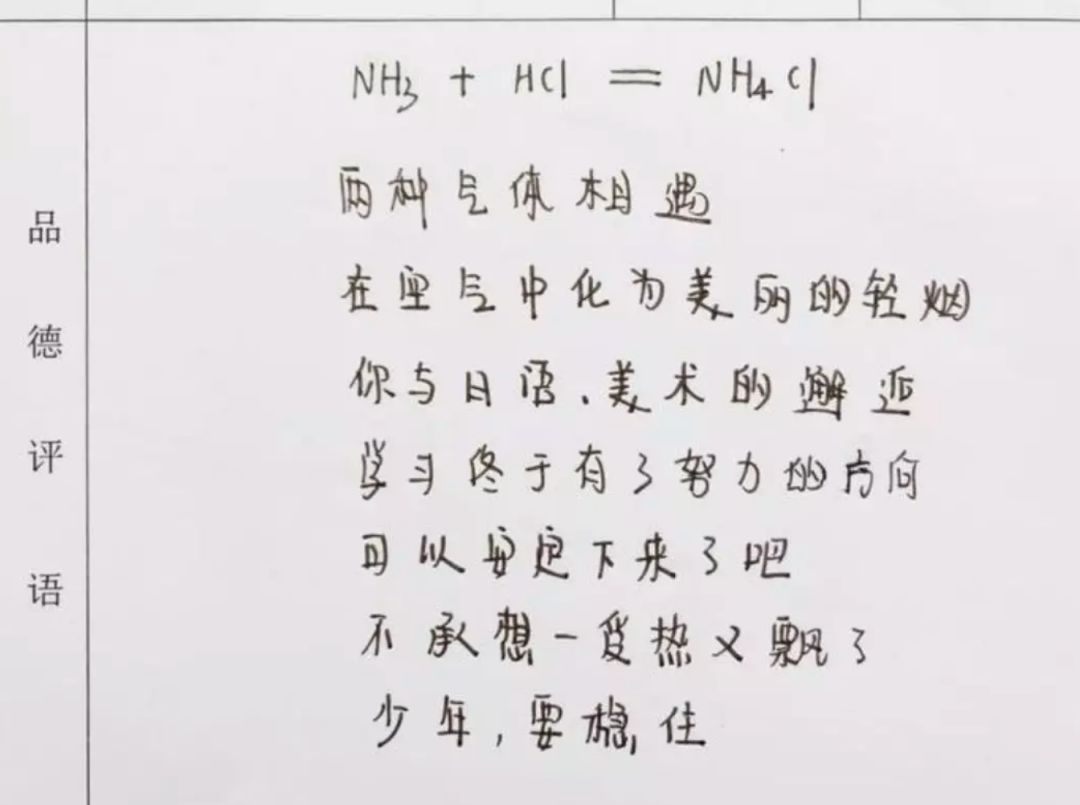 NH₃ + HCl == NH₄Cl
两种气体相遇
在空气中化为美丽的轻烟
你与日语、美术的邂逅
学习终于有了努力的方向
可以安定下来了吧
不承想一受热又飘了
少年,要稳住
品德评语